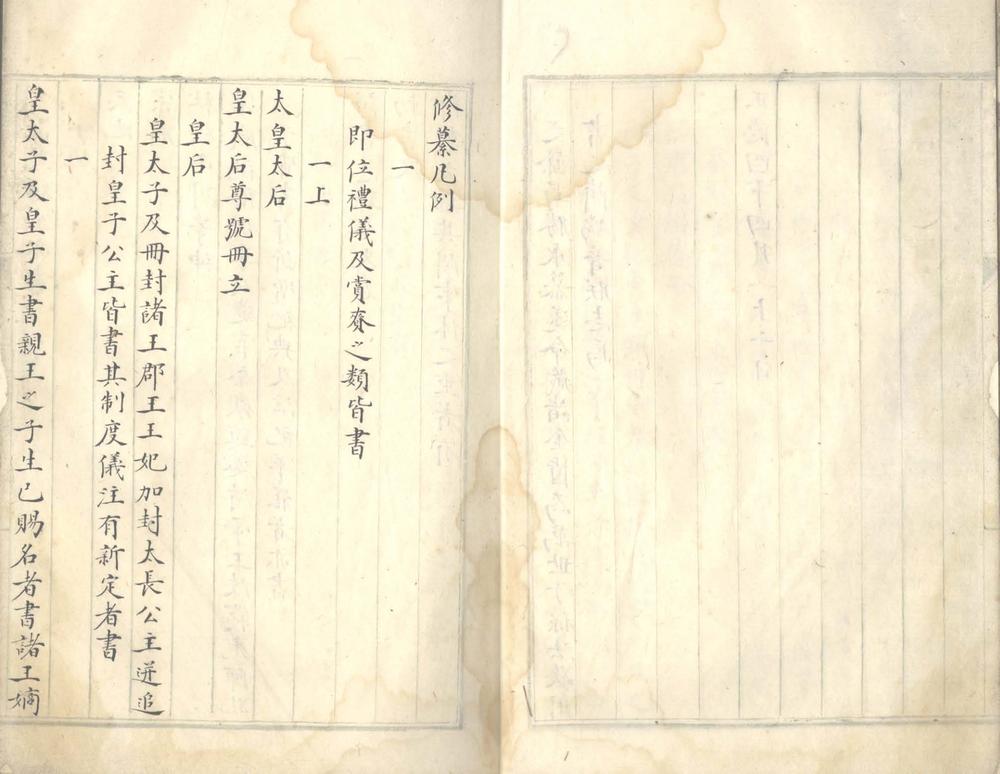 修纂凡例
一
即位禮儀及賞賚之類皆書
一上
太皇太后
皇太后尊號冊立
皇后
皇太子及冊封諸王郡王王妃加封太長公主迸追
封皇子公主皆書其制度儀注有新定者書
一
皇太子及皇子生書親王之子生已賜名者書諸王嫡